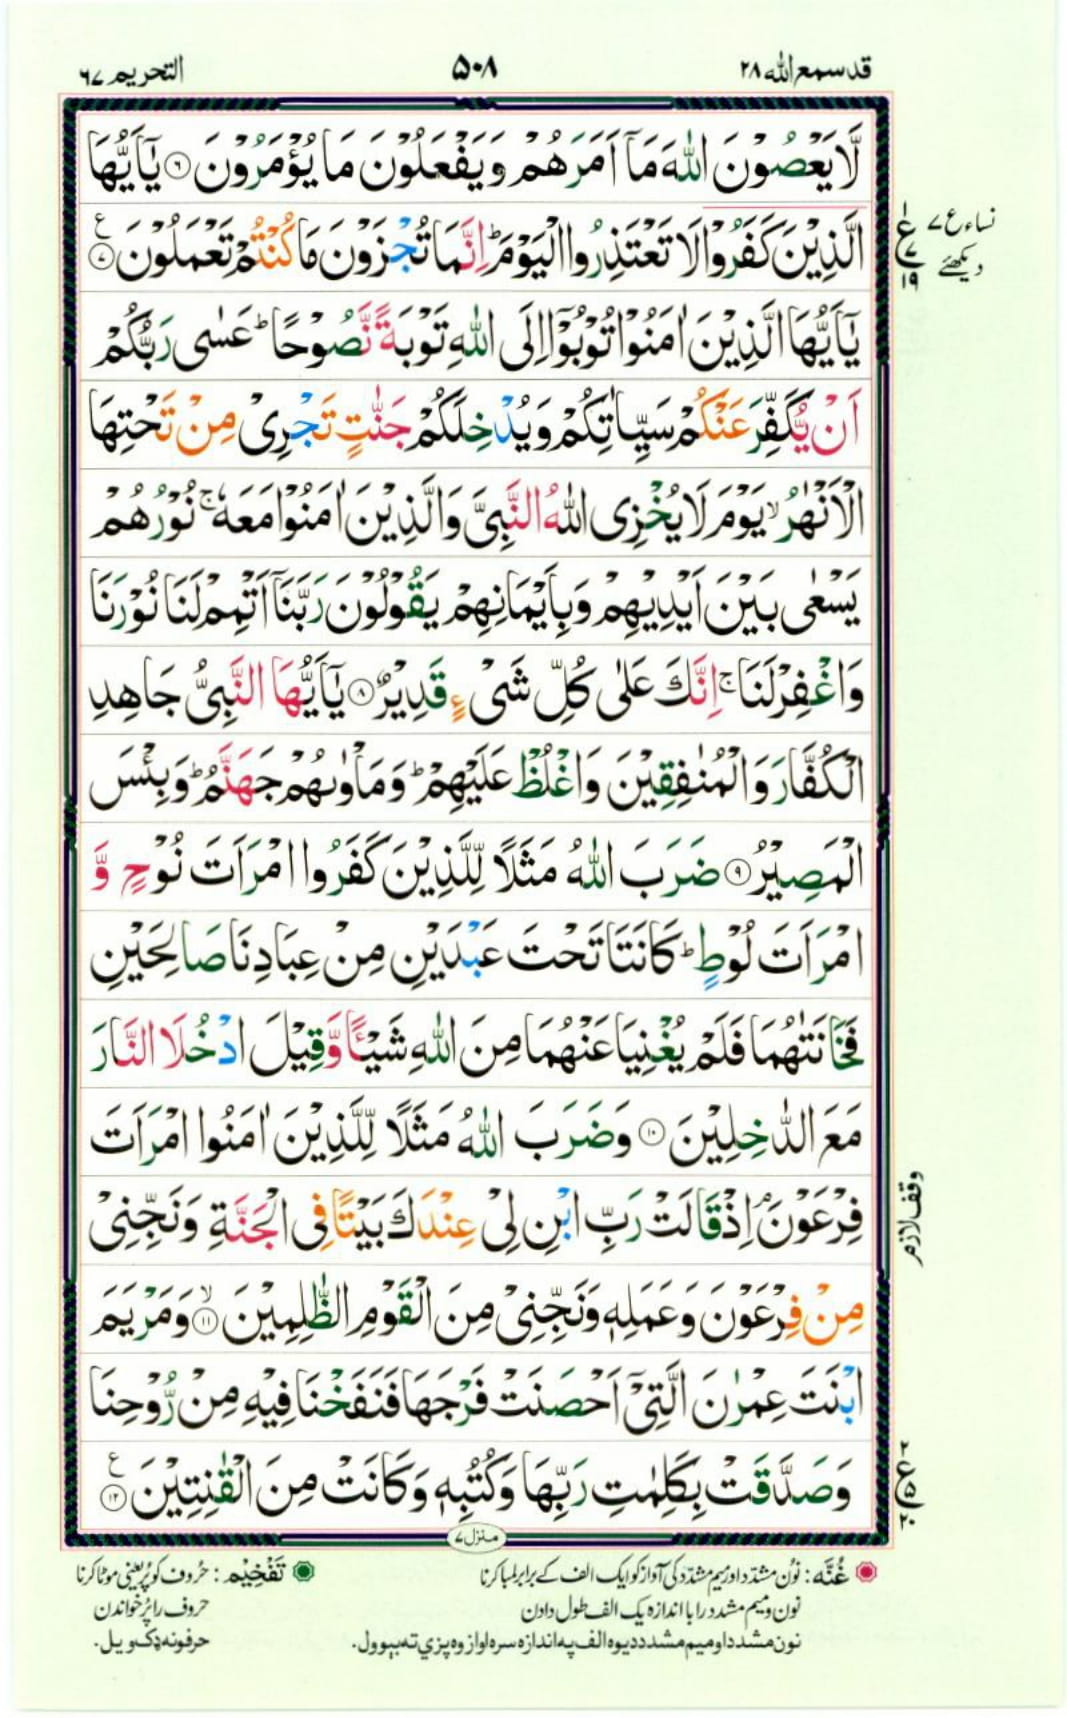 قد سمع الله ٢٨
٥٠٨
التحریم ٦٧
لَّا يَعْصُوْنَ اللّٰهَ مَاۤ اَمَرَهُمْ وَيَفْعَلُوْنَ مَا يُؤْمَرُوْنَ ۝٦ يٰۤاَيُّهَا
الَّذِيْنَ كَفَرُوْا لَا تَعْتَذِرُوا الْيَوْمَ ؕ اِنَّمَا تُجْزَوْنَ مَا كُنْتُمْ تَعْمَلُوْنَ ۝٧ ع
نساء ع ٧
دیکھئے
١
ع
٧
١٩
يٰۤاَيُّهَا الَّذِيْنَ اٰمَنُوْا تُوْبُوْۤا اِلَى اللّٰهِ تَوْبَةً نَّصُوْحًا ؕ عَسٰى رَبُّكُمْ
اَنْ يُّكَفِّرَ عَنْكُمْ سَيِّاٰتِكُمْ وَيُدْخِلَكُمْ جَنّٰتٍ تَجْرِىْ مِنْ تَحْتِهَا
الْاَنْهٰرُ ۙ يَوْمَ لَا يُخْزِى اللّٰهُ النَّبِىَّ وَالَّذِيْنَ اٰمَنُوْا مَعَهٗ ۚ نُوْرُهُمْ
يَسْعٰى بَيْنَ اَيْدِيْهِمْ وَبِاَيْمَانِهِمْ يَقُوْلُوْنَ رَبَّنَاۤ اَتْمِمْ لَنَا نُوْرَنَا
وَاغْفِرْ لَنَا ۚ اِنَّكَ عَلٰى كُلِّ شَىْءٍ قَدِيْرٌ ۝٨ يٰۤاَيُّهَا النَّبِىُّ جَاهِدِ
الْكُفَّارَ وَالْمُنٰفِقِيْنَ وَاغْلُظْ عَلَيْهِمْ ؕ وَمَاْوٰىهُمْ جَهَنَّمُ ؕ وَبِئْسَ
الْمَصِيْرُ ۝٩ ضَرَبَ اللّٰهُ مَثَلًا لِّلَّذِيْنَ كَفَرُوا امْرَاَتَ نُوْحٍ وَّ
امْرَاَتَ لُوْطٍ ؕ كَانَتَا تَحْتَ عَبْدَيْنِ مِنْ عِبَادِنَا صَالِحَيْنِ
فَخَانَتٰهُمَا فَلَمْ يُغْنِيَا عَنْهُمَا مِنَ اللّٰهِ شَيْـًٔا وَّقِيْلَ ادْخُلَا النَّارَ
مَعَ الدّٰخِلِيْنَ ۝١٠ وَضَرَبَ اللّٰهُ مَثَلًا لِّلَّذِيْنَ اٰمَنُوا امْرَاَتَ
فِرْعَوْنَ ۘ اِذْ قَالَتْ رَبِّ ابْنِ لِىْ عِنْدَكَ بَيْتًا فِى الْجَنَّةِ وَنَجِّنِىْ
وقف لازم
مِنْ فِرْعَوْنَ وَعَمَلِهٖ وَنَجِّنِىْ مِنَ الْقَوْمِ الظّٰلِمِيْنَ ۝١١ ۙ وَمَرْيَمَ
ابْنَتَ عِمْرٰنَ الَّتِىْۤ اَحْصَنَتْ فَرْجَهَا فَنَفَخْنَا فِيْهِ مِنْ رُّوْحِنَا
وَصَدَّقَتْ بِكَلِمٰتِ رَبِّهَا وَكُتُبِهٖ وَكَانَتْ مِنَ الْقٰنِتِيْنَ ۝١٢ ع
٢
ع
٥
٢٠
منزل ٧
غُنَّه : نُون مشدّد اور میم مشدّد کی آواز کو ایک الف کے برابر لمبا کرنا
نون و میم مشدد را با اندازہ یک الف طول دادن
نون مشدد او میم مشدد دیوه الف په اندازه سره اواز وه پزې ته بېوول.
تَفْخِیْم : حُروف کو پُر یعنی موٹا کرنا
حروف را پُر خواندن
حرفونه ډک ویل.